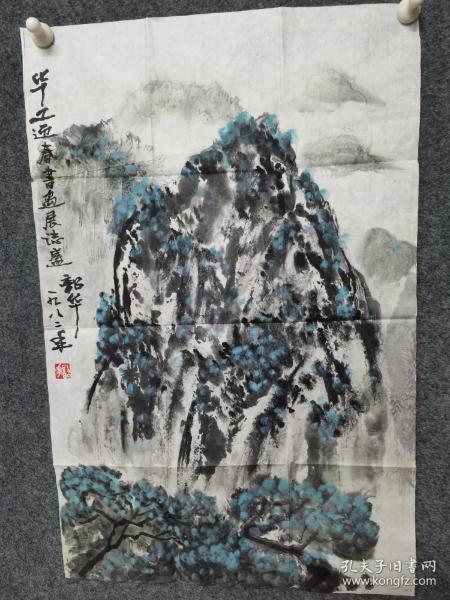 毕工迎春書画展誌盛
韶华
一九八二年
孔夫子旧书网
www.kongfz.com